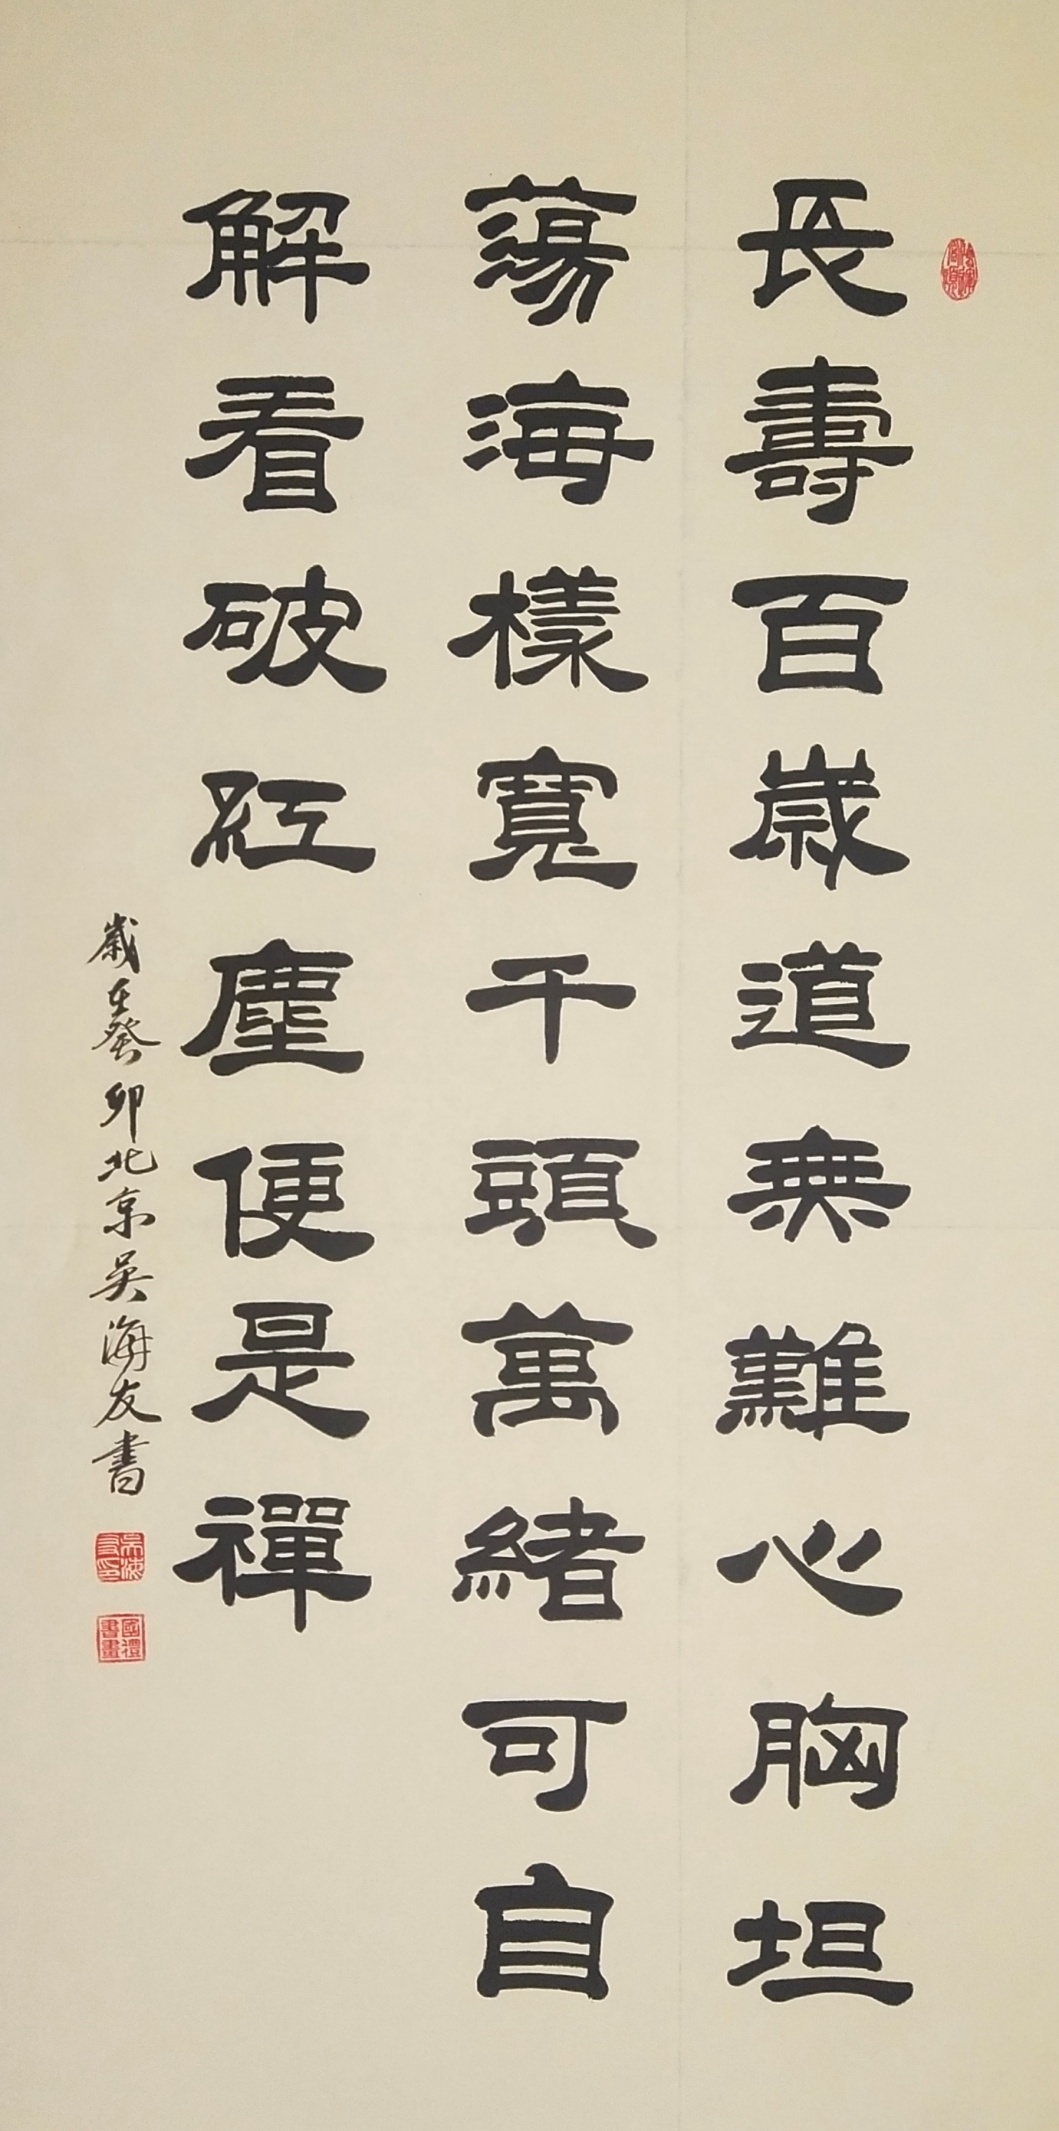 長壽百歲道無難心胸坦
蕩海樣寬千頭萬緒可自
解看破紅塵便是禪
歲在癸卯北京吳海友書
吳海友印
國禮書畫